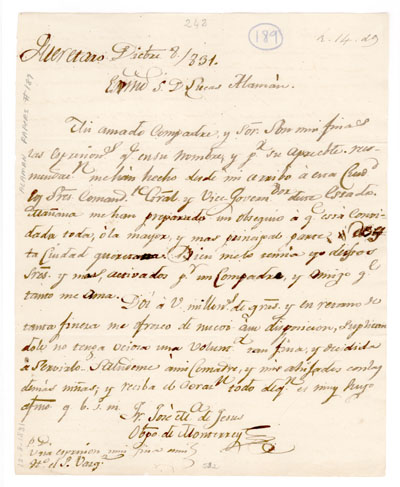 242
189
2.14.29
Querétaro Dicbre 8/831.
Exmo S. D Lucas Alamán.
Mi amado Compadre, y Sor. Son muy finas
las expresiones qe en su nombre, y pr su apreciable
me han hecho desde mi arribo a esta Ciud
los Sres Comande Gral y Vice Gobernor de este Estado.
Mañana me han preparado un obsequio á qe está Convi
dada toda, ó la mayor, y mas principal parte de es
ta Ciudad queretana. Bien me lo tenia yo dichos
Sres. y mas, activados pr un Compadre, y Amigo qe
tanto me ama. Doi á V. mill de y en retorno de
tanta fineza me ofrezco de nuevo á su disposicion, suplican
dole no tenga ociosa una voluntd tan fina, y decidida
a servirlo. Salúdeme á mi Comadre, y mis ahijados con las
demás niñas; y reciba el todo de qe es muy suyo
afmo q. b. s. m.
Fr. José Ma de Jesus
Obpo. de Monterrey
P.D.
Una expresion mui fina mui
al S.
ALAMAN PAPERS # 189
12-8-1831